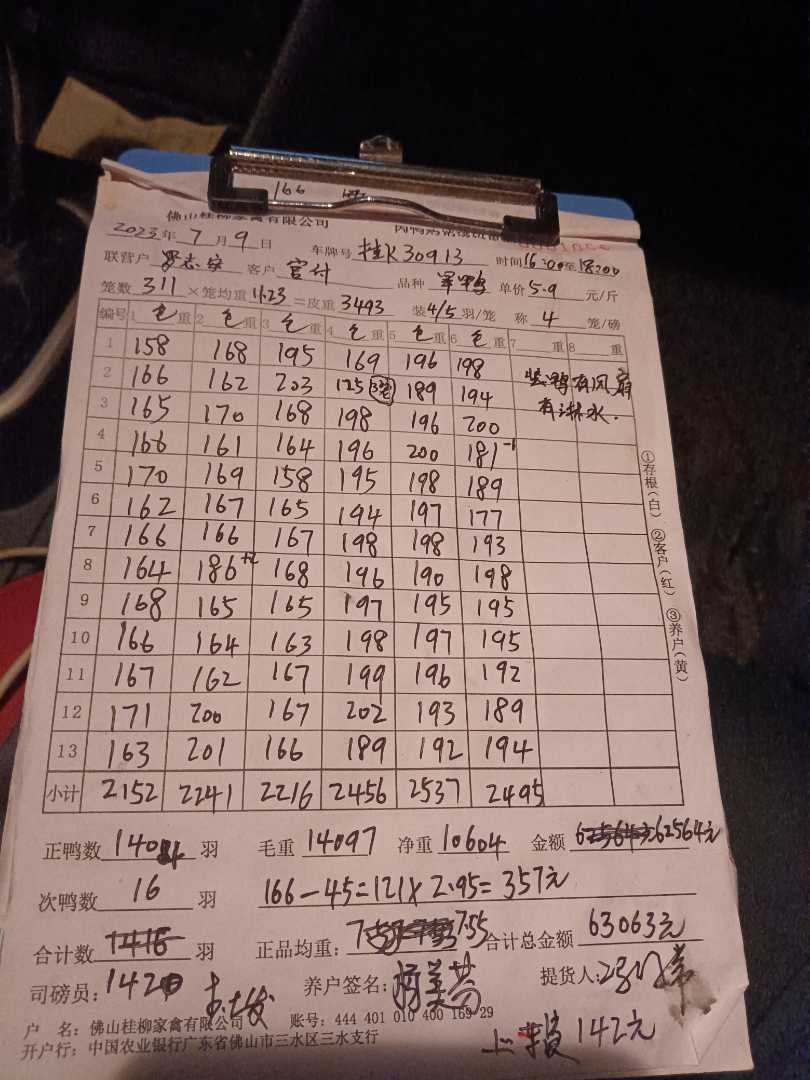 166
佛山桂柳家禽有限公司
2023年7月9日 车牌号 桂K30913 时间16:00至18:00
联营户 罗志安 客户 官付 品种 单价5.9元/斤
笼数311×笼均重11.23=皮重3493 装4/5羽/笼 称4笼/磅
编号 1毛重 2毛重 3毛重 4毛重 5毛重 6毛重 7重 8重
1 158 168 195 169 196 198
2 166 162 203 125 3笼 189 194
3 165 170 168 198 196 200
4 166 161 164 196 200 181-1
5 170 169 158 195 198 189
6 162 167 165 194 197 177
7 166 166 167 198 198 193
8 164 186+2 168 196 190 198
9 168 165 165 197 195 195
10 166 164 163 198 197 195
11 167 162 167 199 196 192
12 171 200 167 202 193 189
13 163 201 166 189 192 194
小计 2152 2241 2216 2456 2537 2495
装鸭有风扇
有淋水.
①存根(白) ②客户(红) ③养户(黄)
正鸭数1404羽 毛重14097 净重10604 金额 62564元
次鸭数16羽 166-45=121×2.95=357元
合计数 1416 羽 正品均重: 7.55 合计总金额63063元
司磅员: 1420 养户签名: 提货人:
户 名: 佛山桂柳家禽有限公司 账号: 444 401 010 400 169 29
开户行: 中国农业银行广东省佛山市三水区三水支行
142元